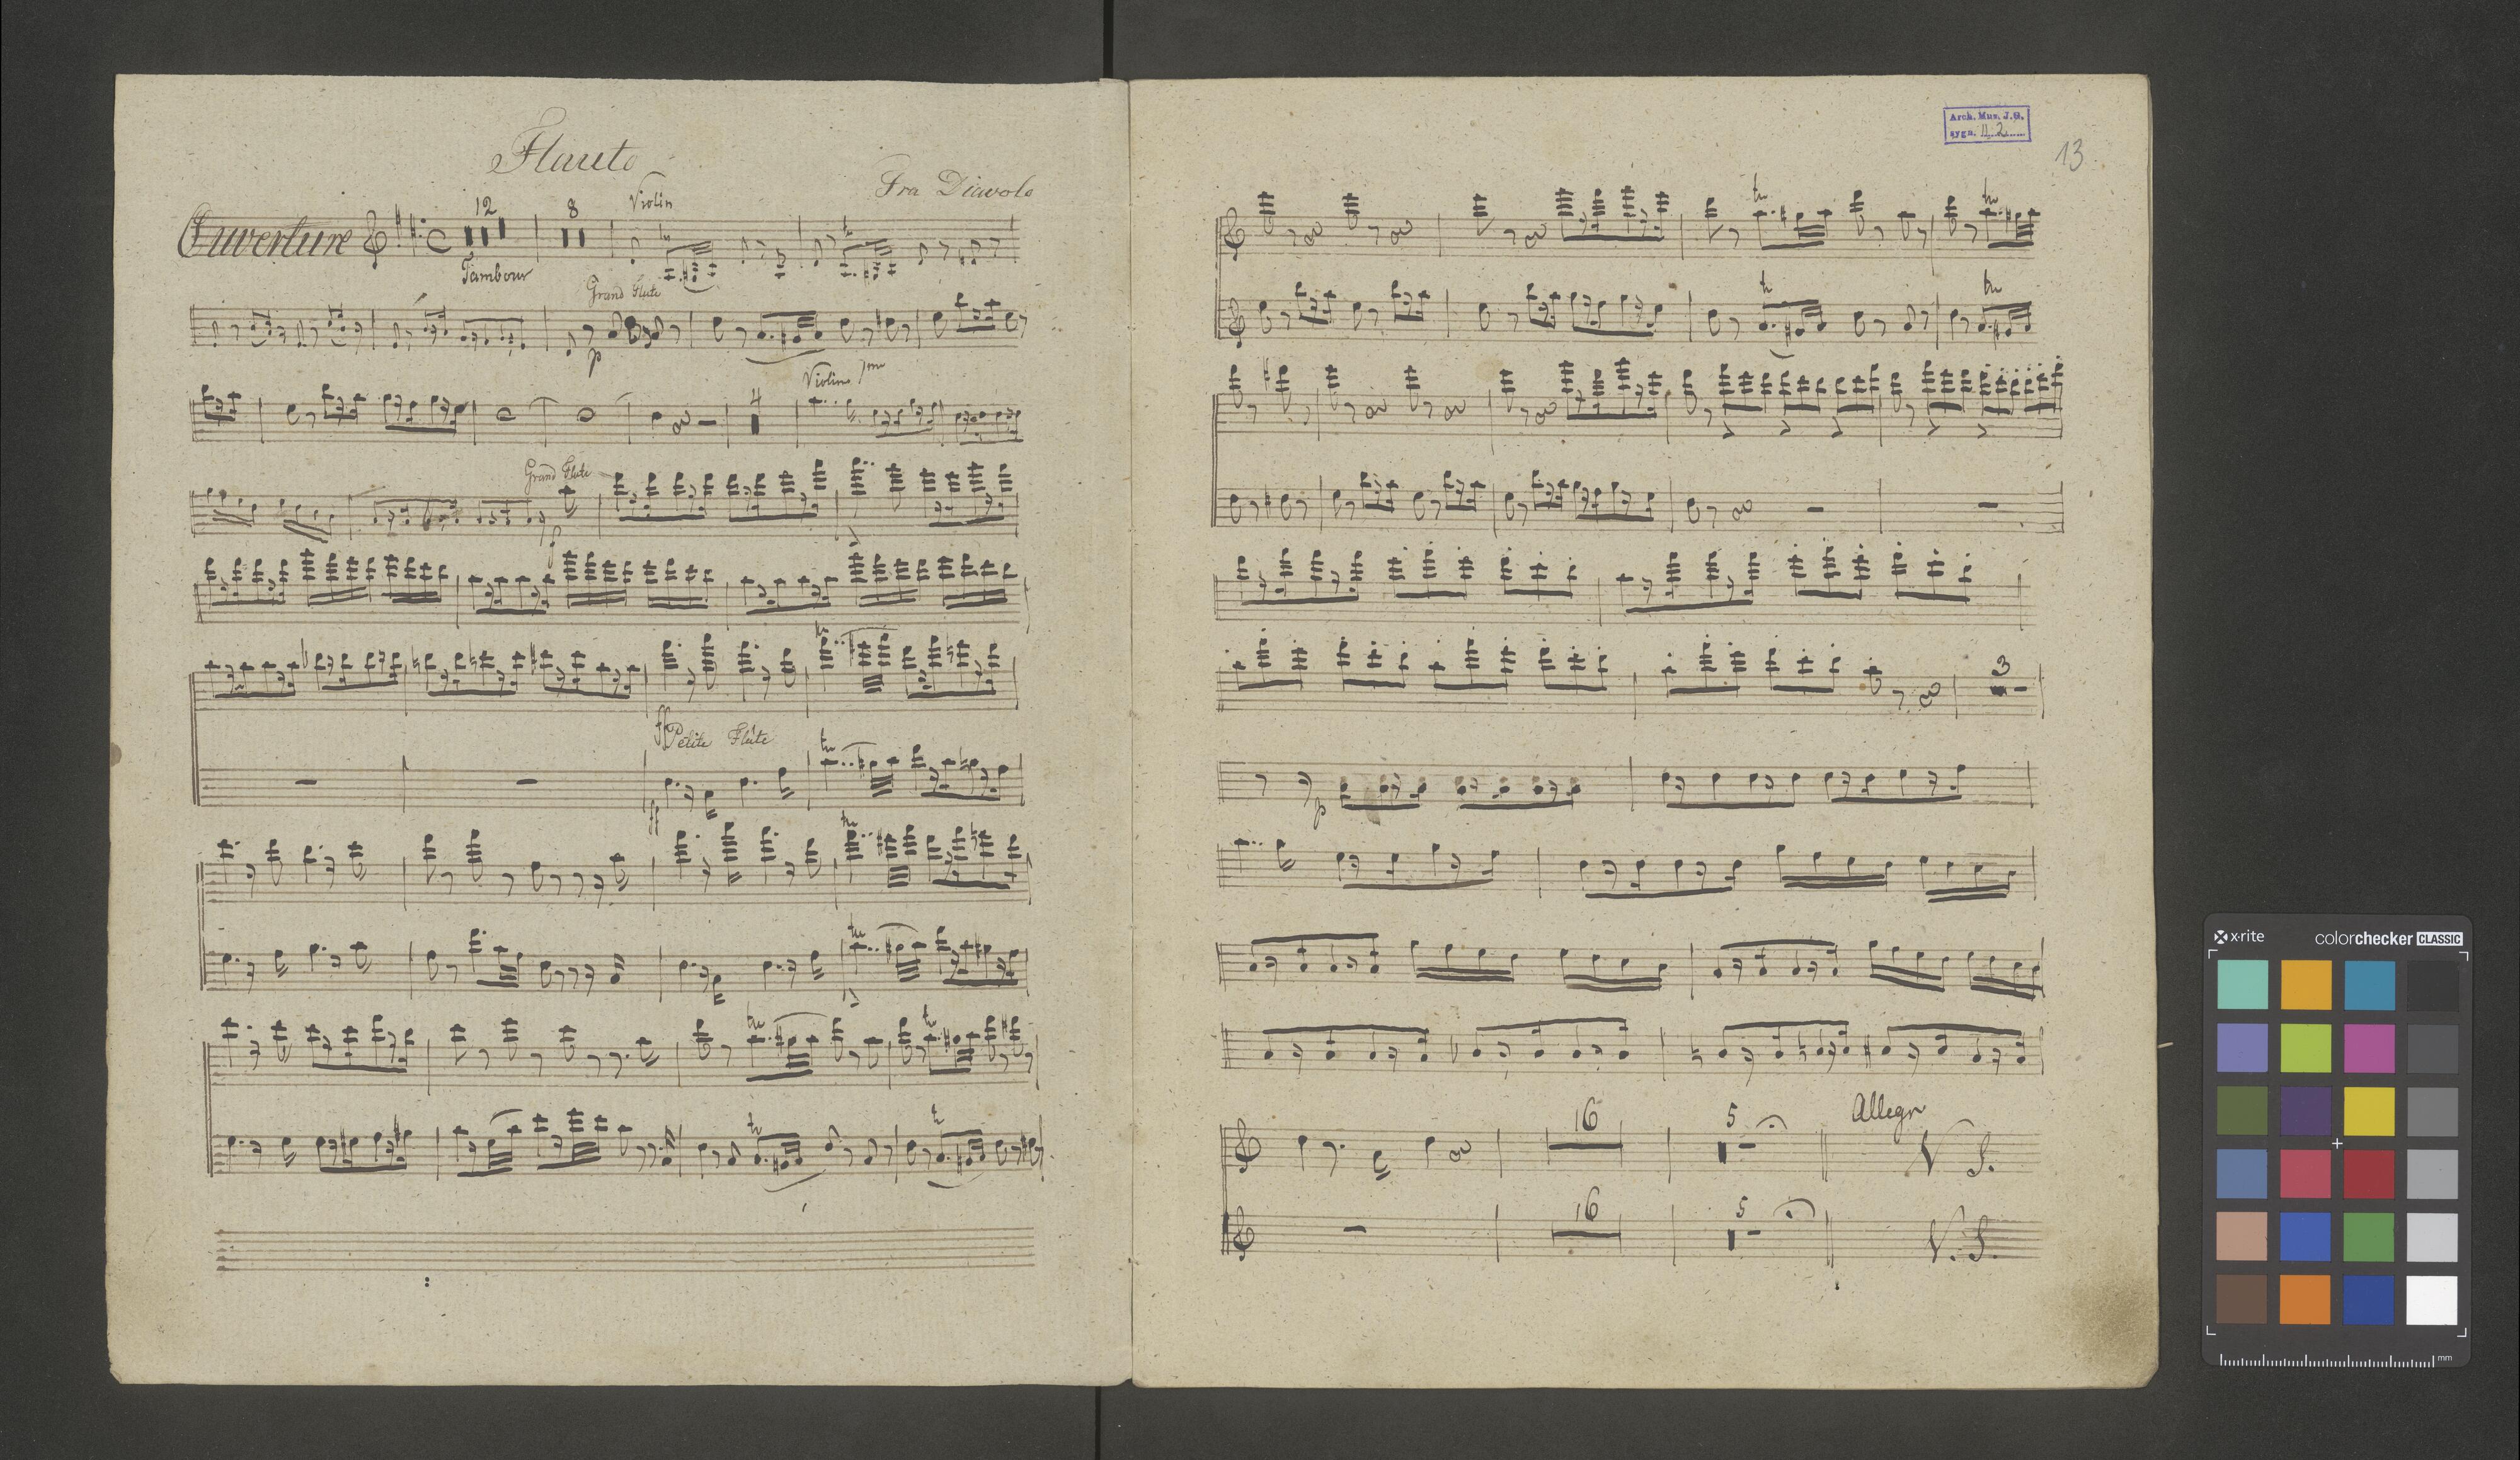 Flauto
Fra Diavolo
Ouverture
12
8
Violin
Tambour
Grand Flute
p
4
Violino 1mo
Grand Flute
ff
Petite Flûte
ff
Arch. Mus. J. G.
sygn. II. 2
13
3
p
16
5
Allegro
V. S.
16
5
V. S.
x-rite
colorchecker CLASSIC
mm